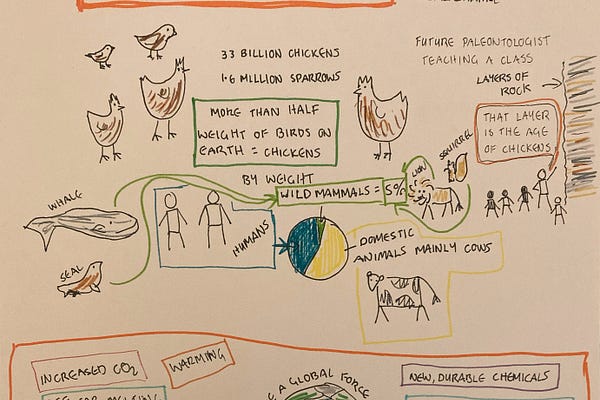 33 BILLION CHICKENS
1.6 MILLION SPARROWS
MORE THAN HALF
WEIGHT OF BIRDS ON
EARTH = CHICKENS
FUTURE PALEONTOLOGIST
TEACHING A CLASS
LAYERS OF
ROCK
THAT LAYER
IS THE AGE
OF CHICKENS
BY WEIGHT
WILD MAMMALS = 5%
LION
SQUIRREL
WHALE
SEAL
HUMANS
DOMESTIC
ANIMALS MAINLY COWS
INCREASED CO2
WARMING
A GLOBAL FORCE
NEW, DURABLE CHEMICALS